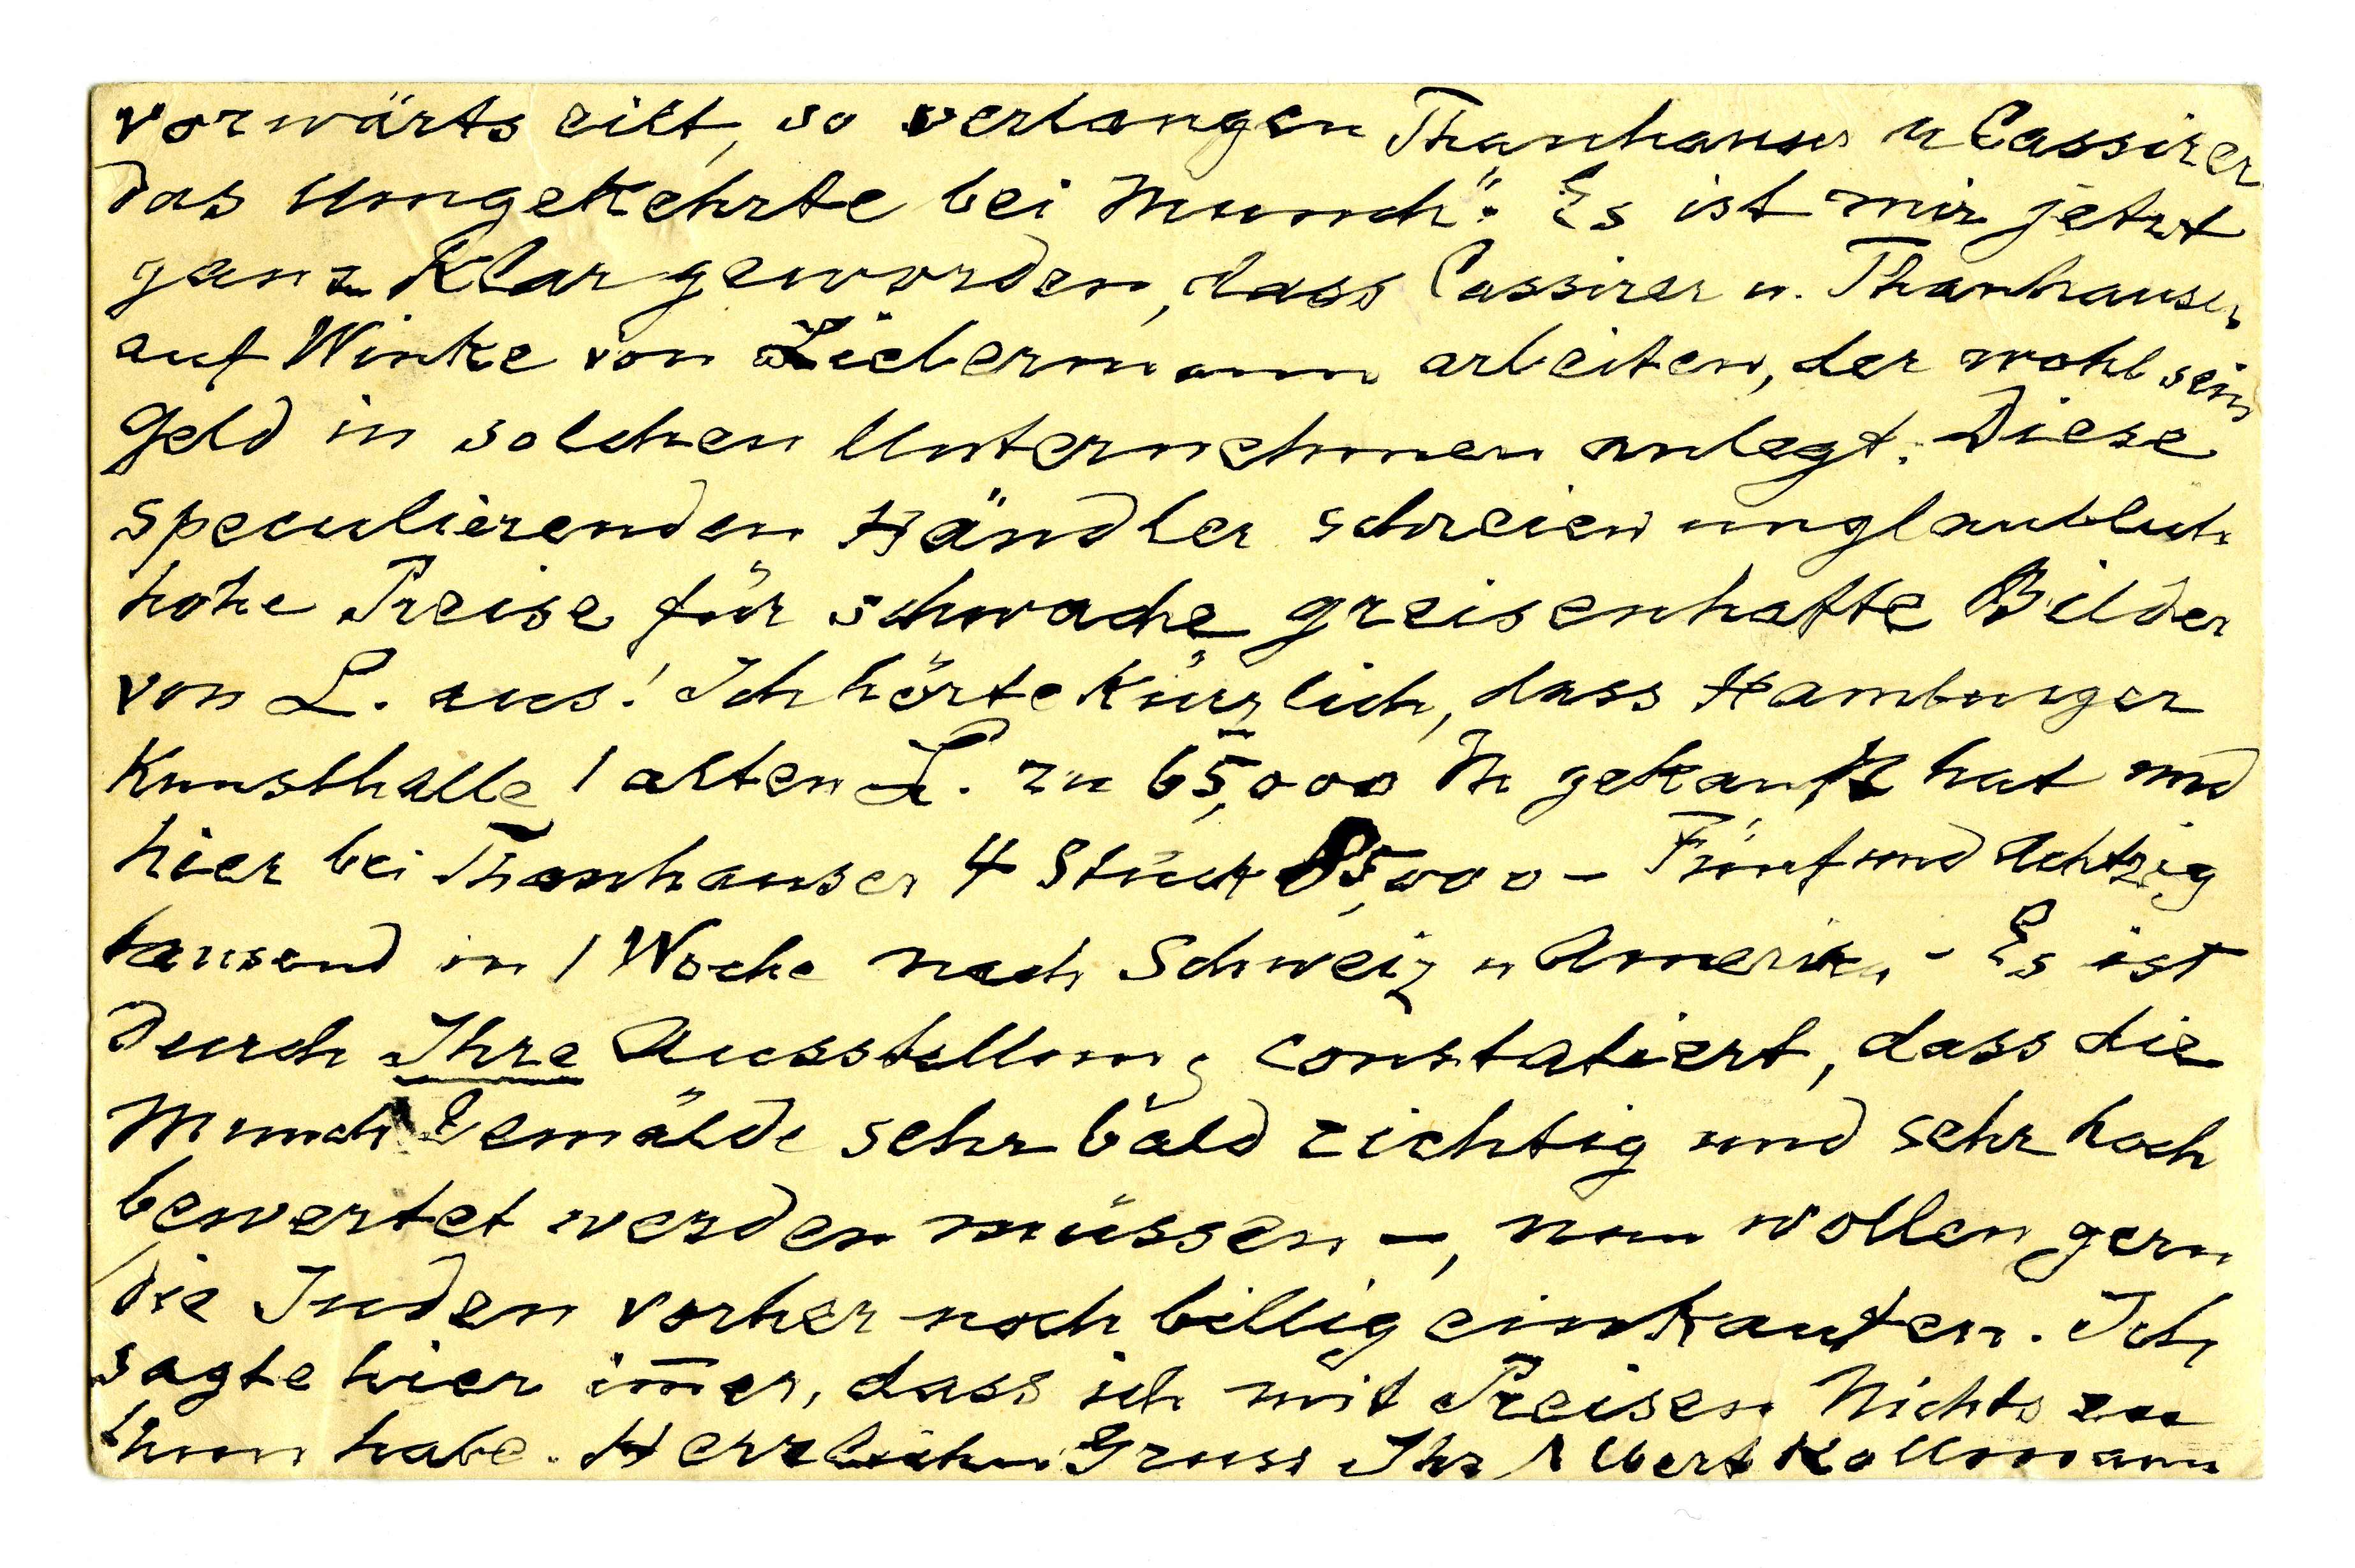 vorwärts eilt, so verlangen Thanhauser u Cassirer
das Umgekehrte bei Munch". Es ist mir jetzt
ganz Klar geworden, dass Cassirer u. Thanhauser
auf Winke von Liebermann arbeiten, der wohl sein
Geld in solchen Unternehmen anlegt. Diese
speculierenden Händler schreien unglaublich
hohe Preise für schwache greisenhafte Bilder
von L. aus! Ich hörte Kürzlich, dass Hamburger
Kunsthalle 1 alten L. zu 65,000 M gekauft hat und
hier bei Thanhauser 4 Stück 85,000 – Fünf und Achtzig
tausend in 1 Woche nach Schweiz u Amerika – Es ist
durch Ihre Ausstellung constatiert, dass die
Munch Gemälde sehr bald richtig und sehr hoch
bewertet werden müssen –, nun wollen gern
die Juden vorher noch billig einkaufen. Ich
sagte hier im̅er, dass ich mit Preisen Nichts zu
thun habe. Herzlichen Gruss Ihr Albert Kollmann